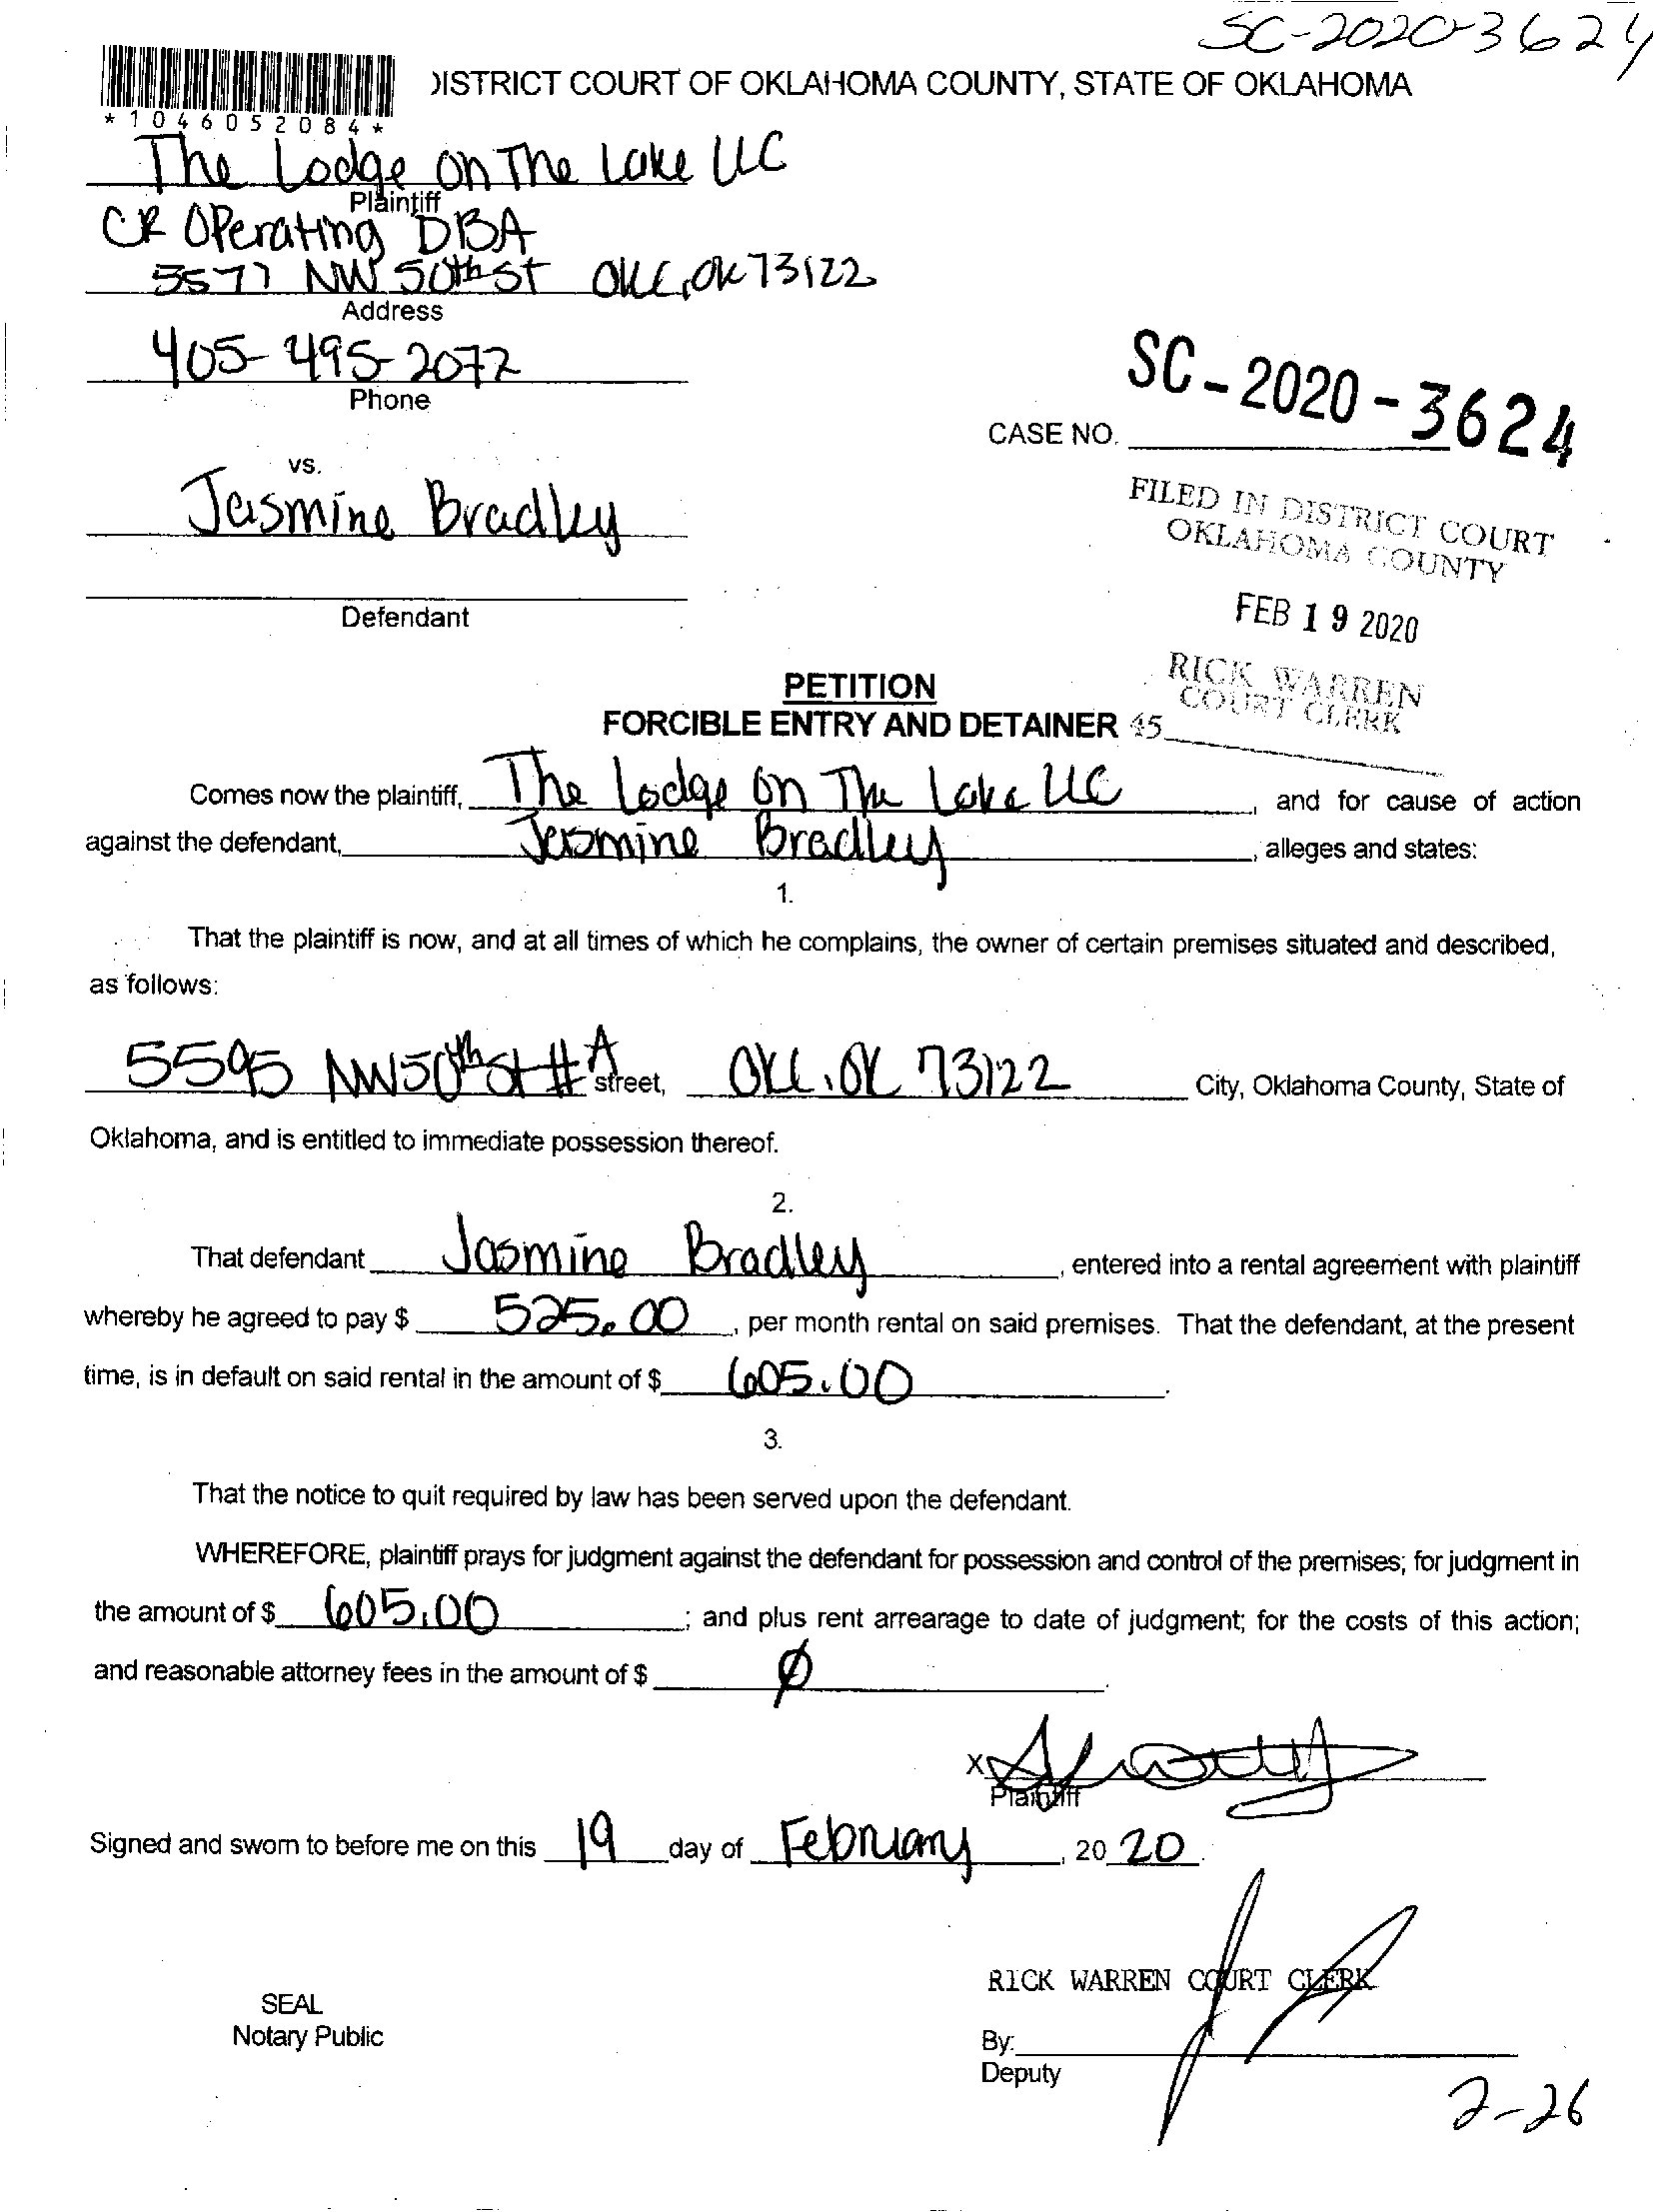 SC-2020-3624
DISTRICT COURT OF OKLAHOMA COUNTY, STATE OF OKLAHOMA
*1046052084*
The Lodge on The Lake LLC
Plaintiff
CR Operating DBA
5577 NW 50th St OKC, OK 73122
Address
405-495-2072
Phone
SC-2020-3624
CASE NO.
vs.
Jasmine Bradley
FILED IN DISTRICT COURT
OKLAHOMA COUNTY
Defendant
FEB 19 2020
RICK WARREN
COURT CLERK
PETITION
FORCIBLE ENTRY AND DETAINER 45
Comes now the plaintiff, The Lodge on The Lake LLC, and for cause of action
against the defendant, Jasmine Bradley, alleges and states:
1.
That the plaintiff is now, and at all times of which he complains, the owner of certain premises situated and described,
as follows:
5595 NW 50th St #A street, OKC, OK 73122 City, Oklahoma County, State of
Oklahoma, and is entitled to immediate possession thereof.
2.
That defendant Jasmine Bradley, entered into a rental agreement with plaintiff
whereby he agreed to pay $ 525.00, per month rental on said premises. That the defendant, at the present
time, is in default on said rental in the amount of $ 605.00.
3.
That the notice to quit required by law has been served upon the defendant.
WHEREFORE, plaintiff prays for judgment against the defendant for possession and control of the premises; for judgment in
the amount of $ 605.00; and plus rent arrearage to date of judgment; for the costs of this action;
and reasonable attorney fees in the amount of $ Ø.
X
Plaintiff
Signed and sworn to before me on this 19 day of February, 20 20.
RICK WARREN COURT CLERK
SEAL
Notary Public
By:
Deputy
2-26